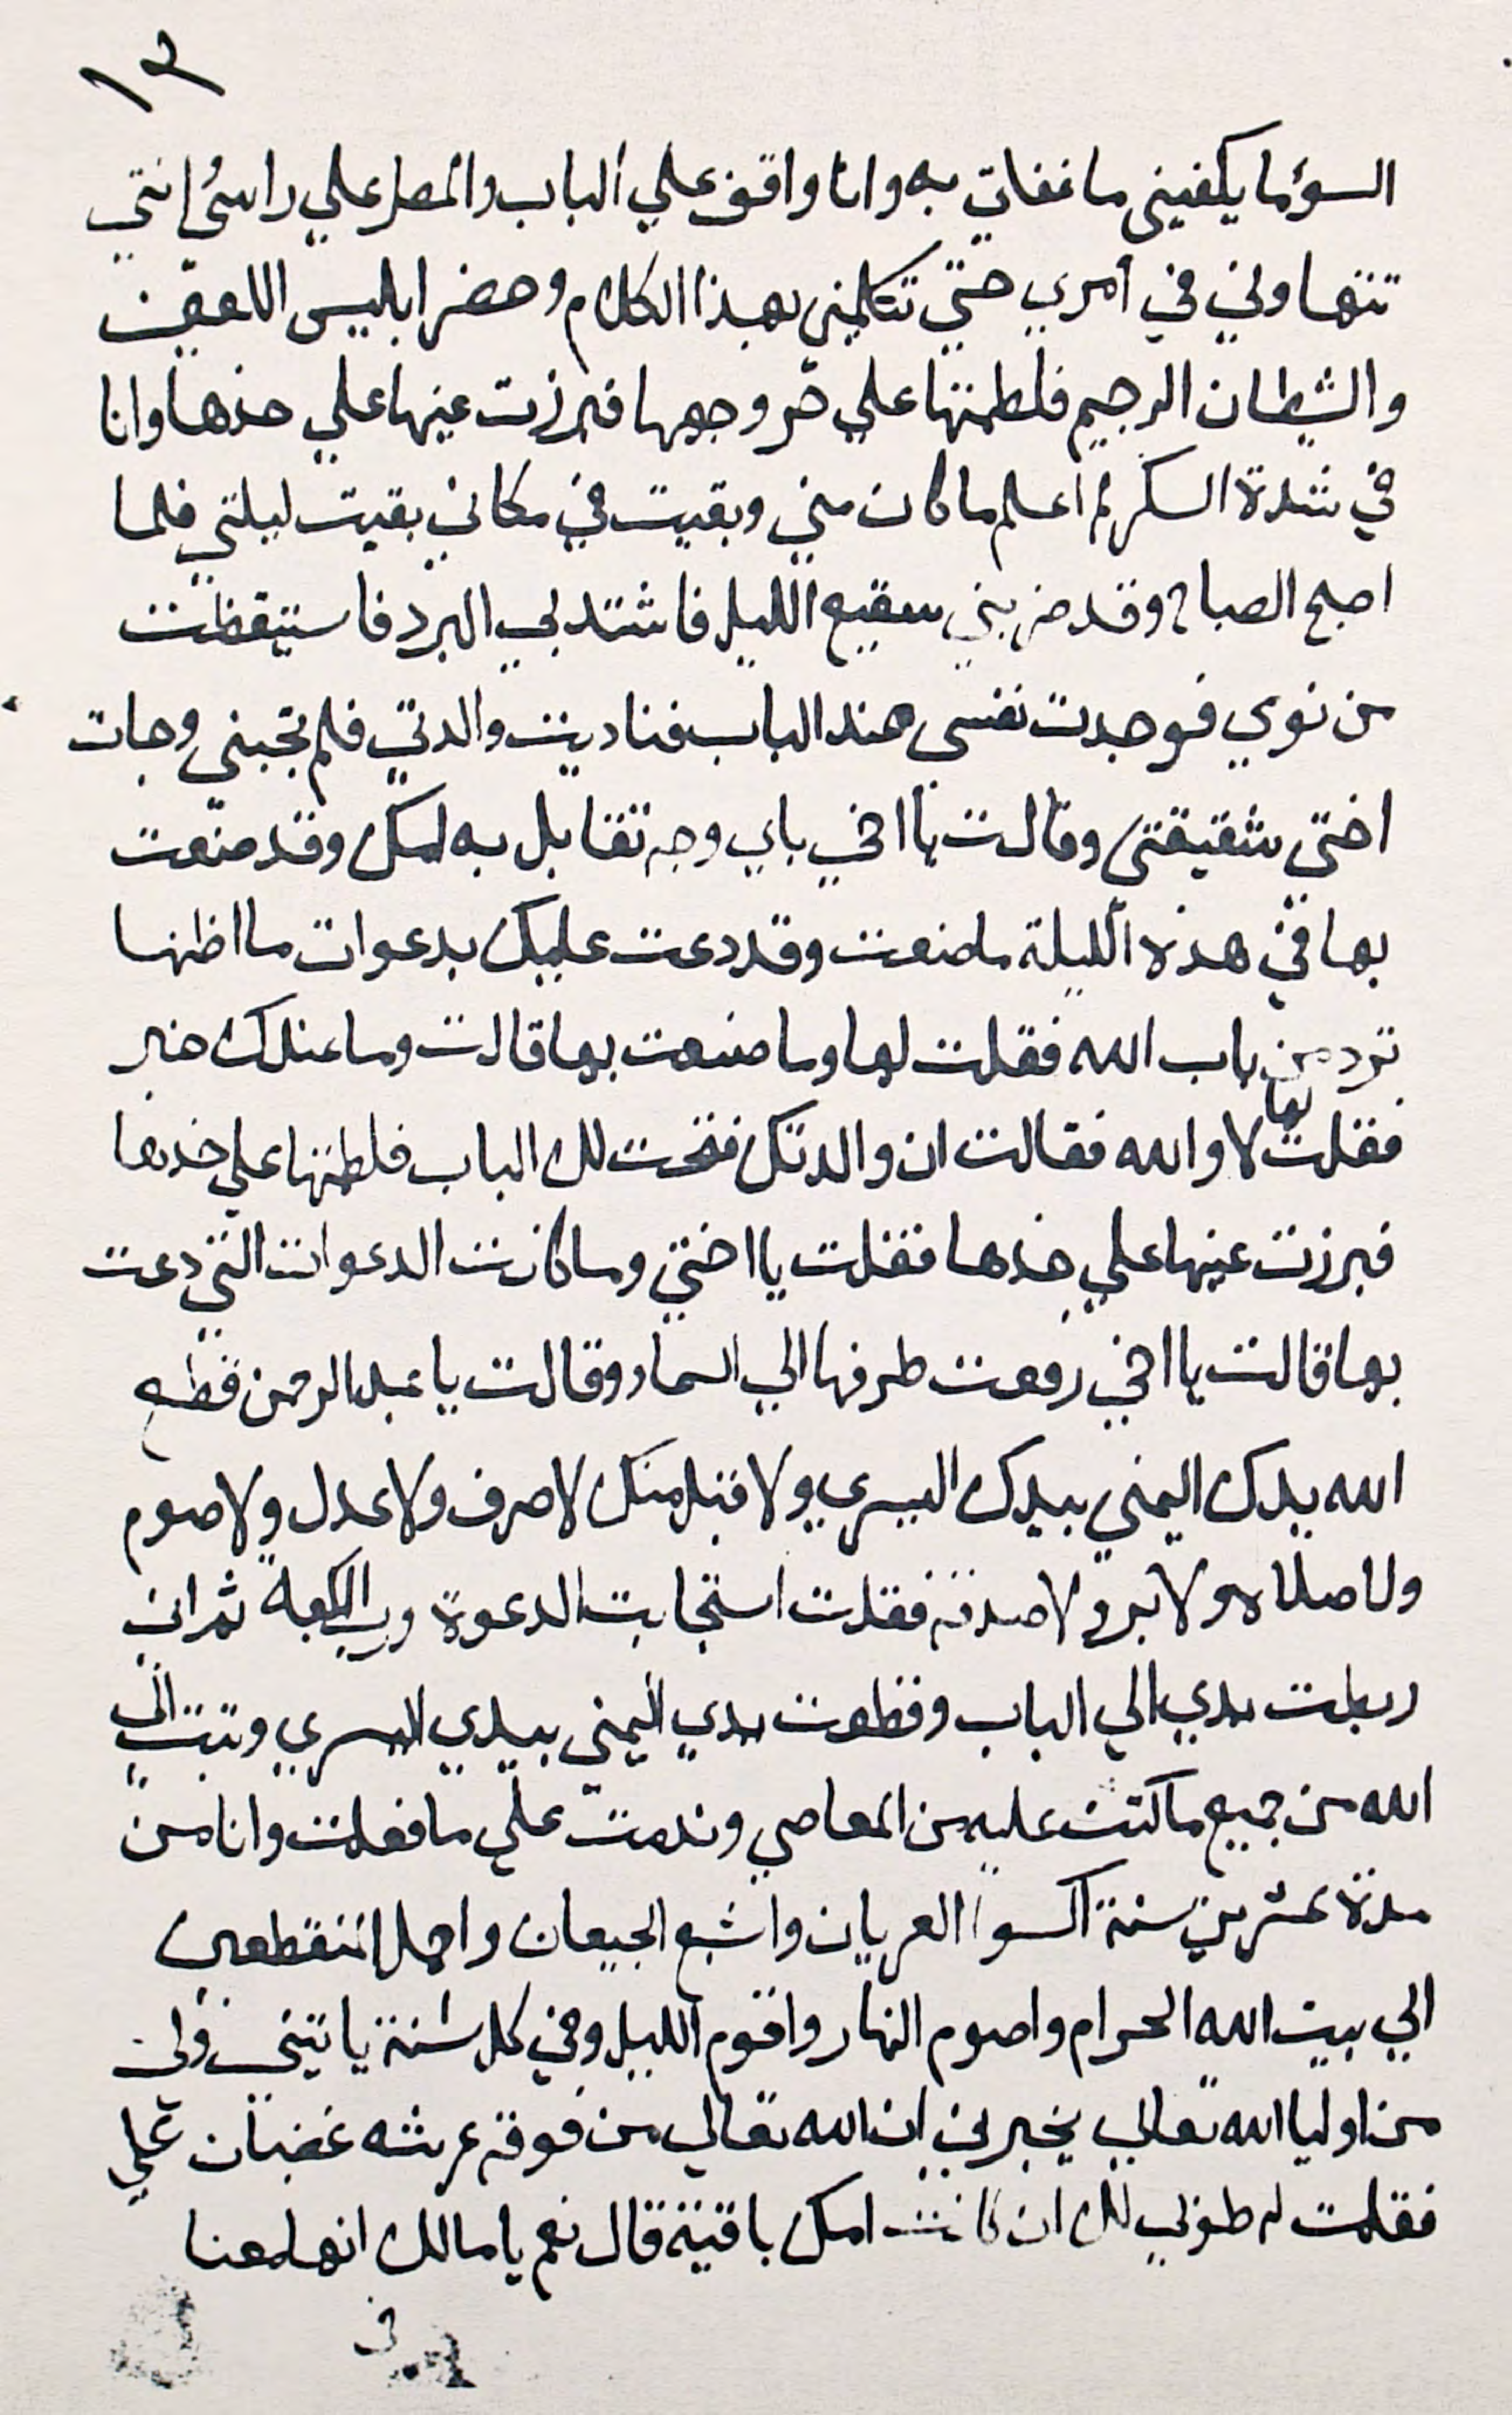 ١٣
السوء ما يكفيني ما فعلت به وانا واقف علي الباب والمطر علي راسي إنتي
تتهاوني في أمري حتي تتكلمني بهذا الكلام وحضر ابليس اللعين
والشيطان الرجيم فلطمتها علي حر وجهها فبرزت عينها علي خدها وانا
في شدة السكر لم أعلم ما كان مني وبقيت في مكاني بقيت ليلتي فلما
اصبح الصباح وقد ضربني سقيع الليل فاشتد بي البرد فاستيقظت
من نومي فوجدت نفسي عند الباب فناديت والدتي فلم تجبني وجات
اختي شقيقتي وقالت يا اخي باي وجه تقابل به امك وقد صنعت
بها في هذه الليلة ما صنعت وقد دعت عليك بدعوات ما اظنها
ترد من باب الله فقلت لها وما صنعت بها قالت وما عندك خبر
فقلت لها لا والله فقالت ان والدتك فتحت لك الباب فلطمتها علي خدها
فبرزت عينها علي خدها فقلت يا اختي وما كانت الدعوات التي دعت
بها قالت يا اخي رفعت طرفها الي السماء وقالت يا عبد الرحمن قطع
الله يدك اليمني بيدك اليسري ولا قبل منك لا صرف ولا عدل ولا صوم
ولا صلاه ولا بر ولا صدقه فقلت استجابت الدعوة ورب الكعبة ثم اني
ربطت يدي الي الباب وقطعت يدي اليمني بيدي اليسري وتبت الي
الله من جميع ما كنت عليه من المعاصي وندمت علي ما فعلت وانا من
مدة عشرين سنة اكسوا العريان واشبع الجيعان واحمل المنقطعين
الي بيت الله الحرام واصوم النهار واقوم الليل وفي كل سنة ياتيني ولي
من اوليا الله تعالي يخبرني ان الله تعالي من فوق عرشه غضبان علي
فقلت له طوبي لك ان كانت امك باقية قال نعم يا مالك انها معنا
في